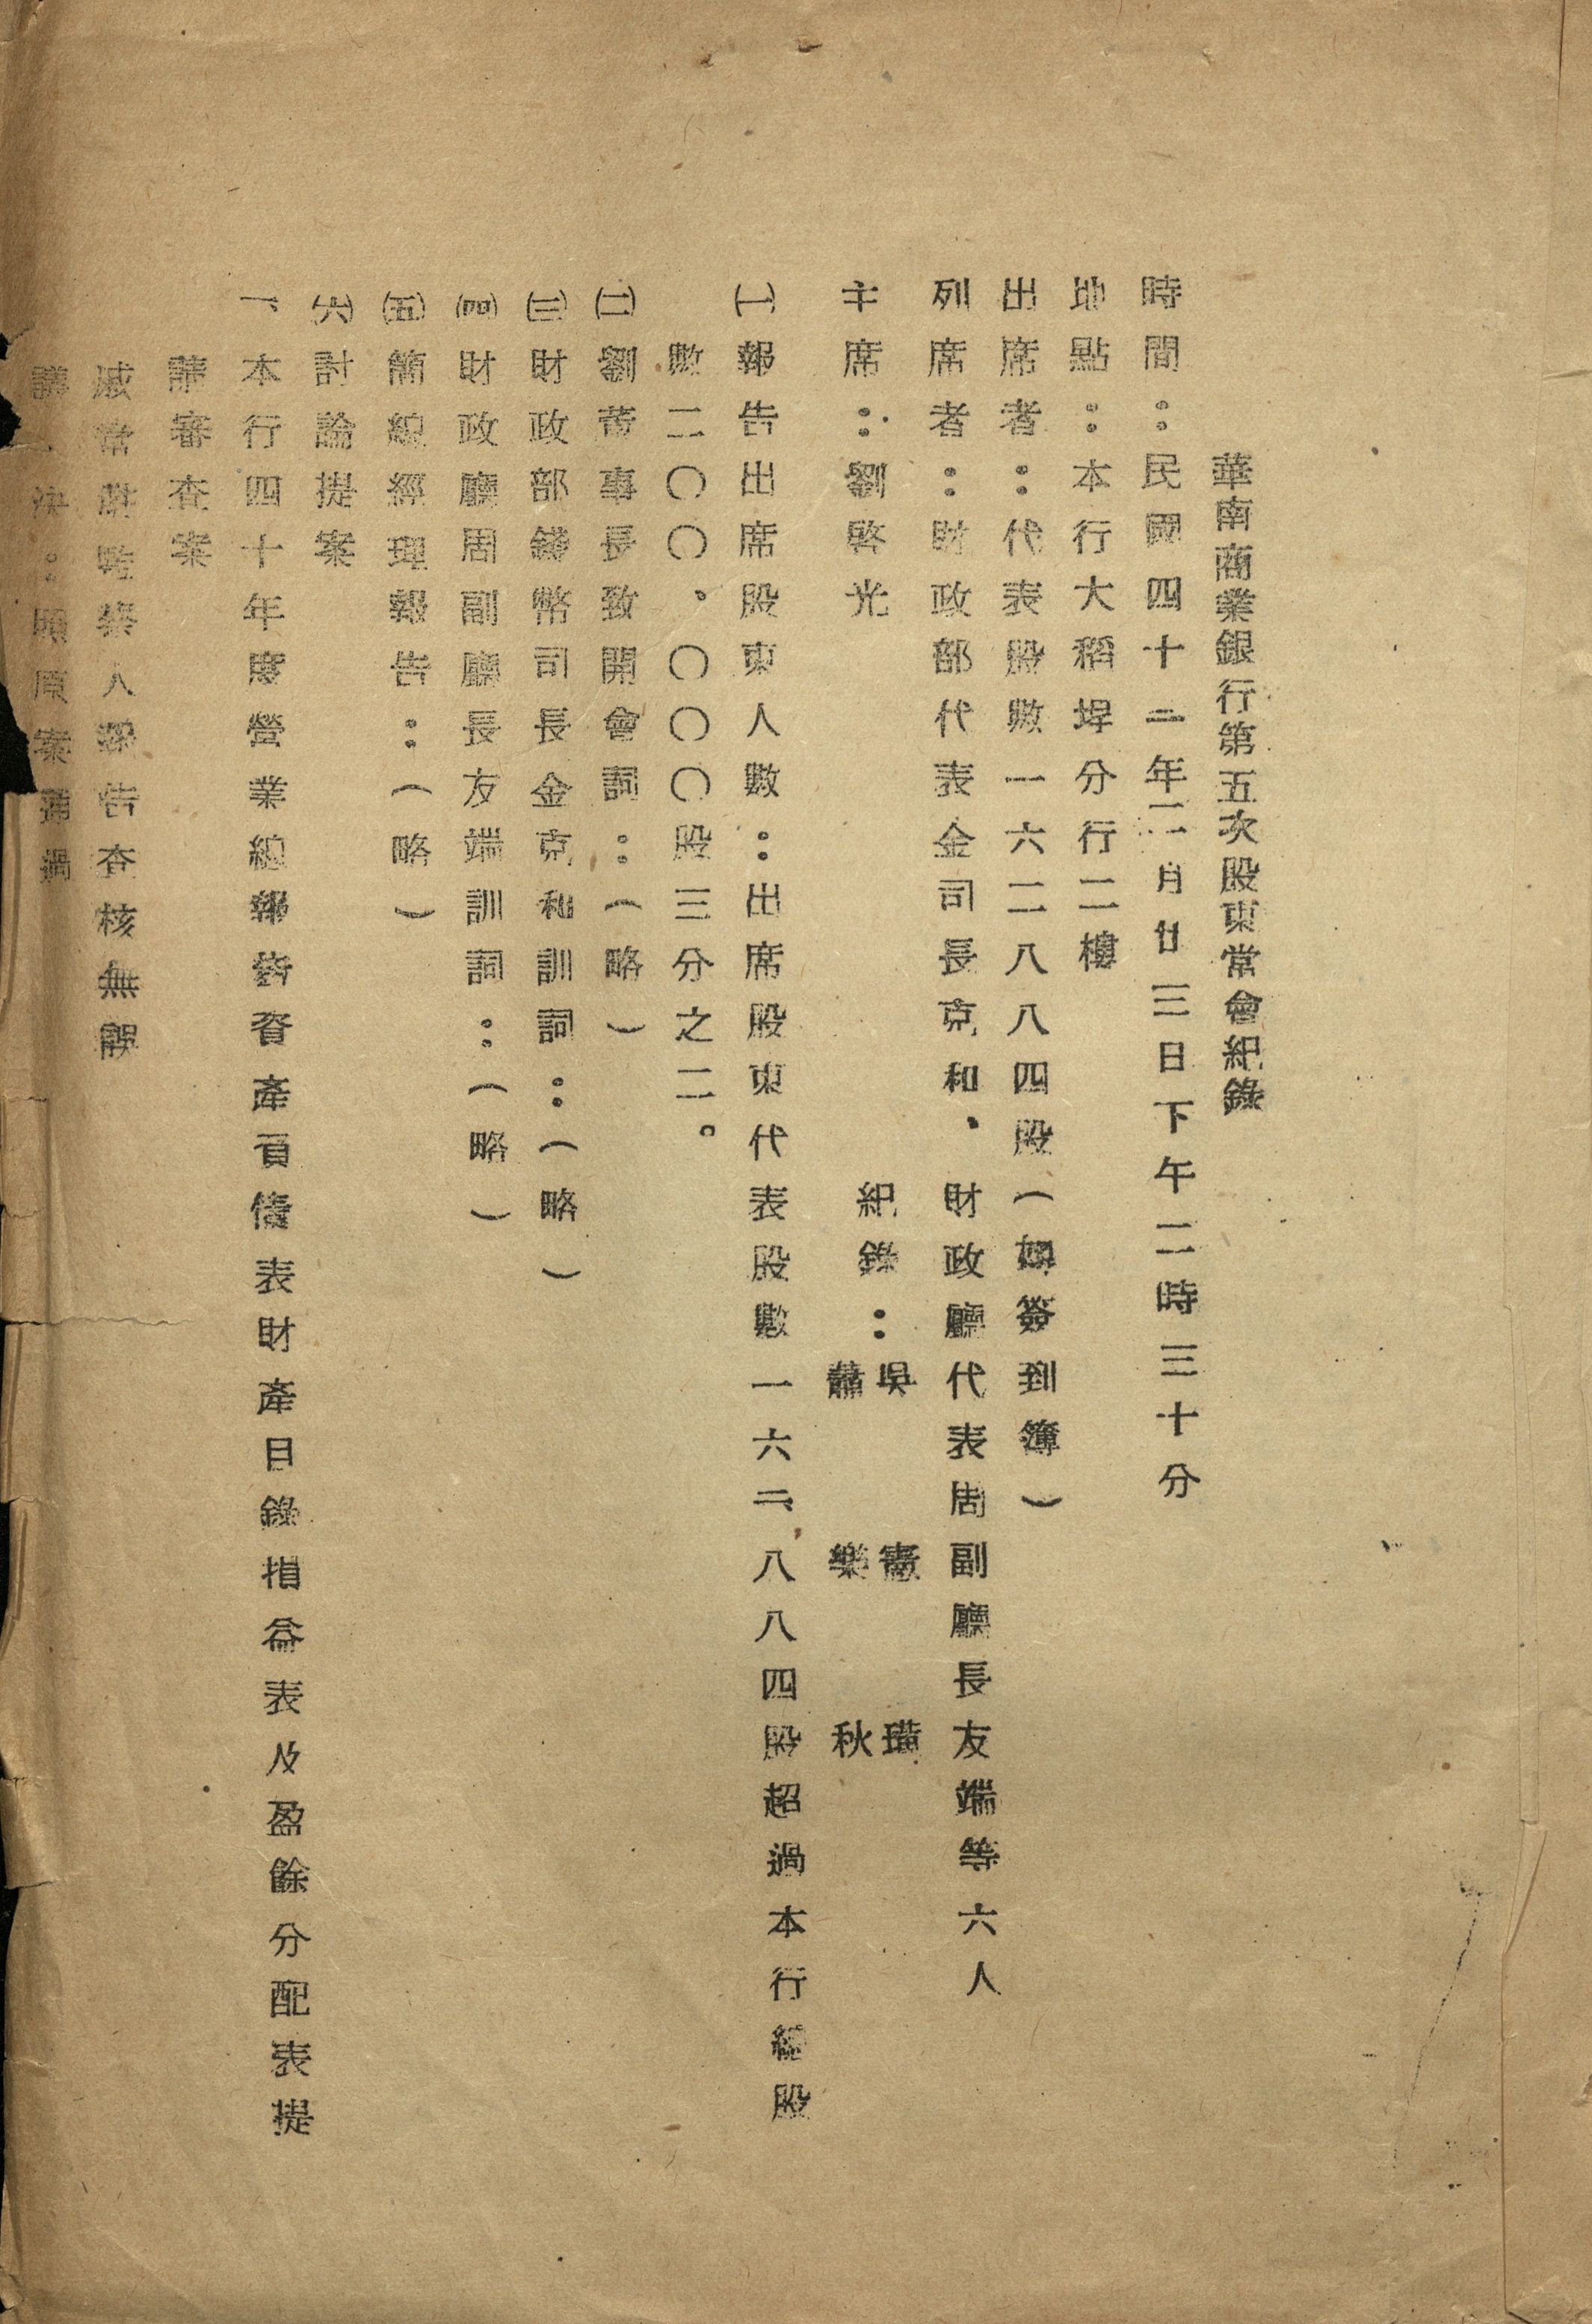 華南商業銀行第五次股東常會紀錄
時間：民國四十二年二月廿三日下午二時三十分
地點：本行大稻埕分行二樓
出席者：出代表股數一六二八八四股（如簽到簿）
列席者：財政部代表金司長克和、財政廳代表周副廳長友端等六人
主席：劉啓光　紀錄：吳憲璜
蕭樂秋
㈠報告出席股東人數：出席股東代表股數一六二、八八四股超過本行總股
數二〇〇。〇〇〇股三分之二。
㈡劉董事長致開會詞：（略）
㈢財政部錢幣司長金克和訓詞：（略）
㈣財政廳周副廳長友端訓詞：（略）
㈤簡總經理報告：（略）
㈥討論提案
一、本行四十年度營業總報告資產負債表財產目錄損益表及盈餘分配表提
請審查案
戚常駐監察人報告查核無誤
議決：照原案通過